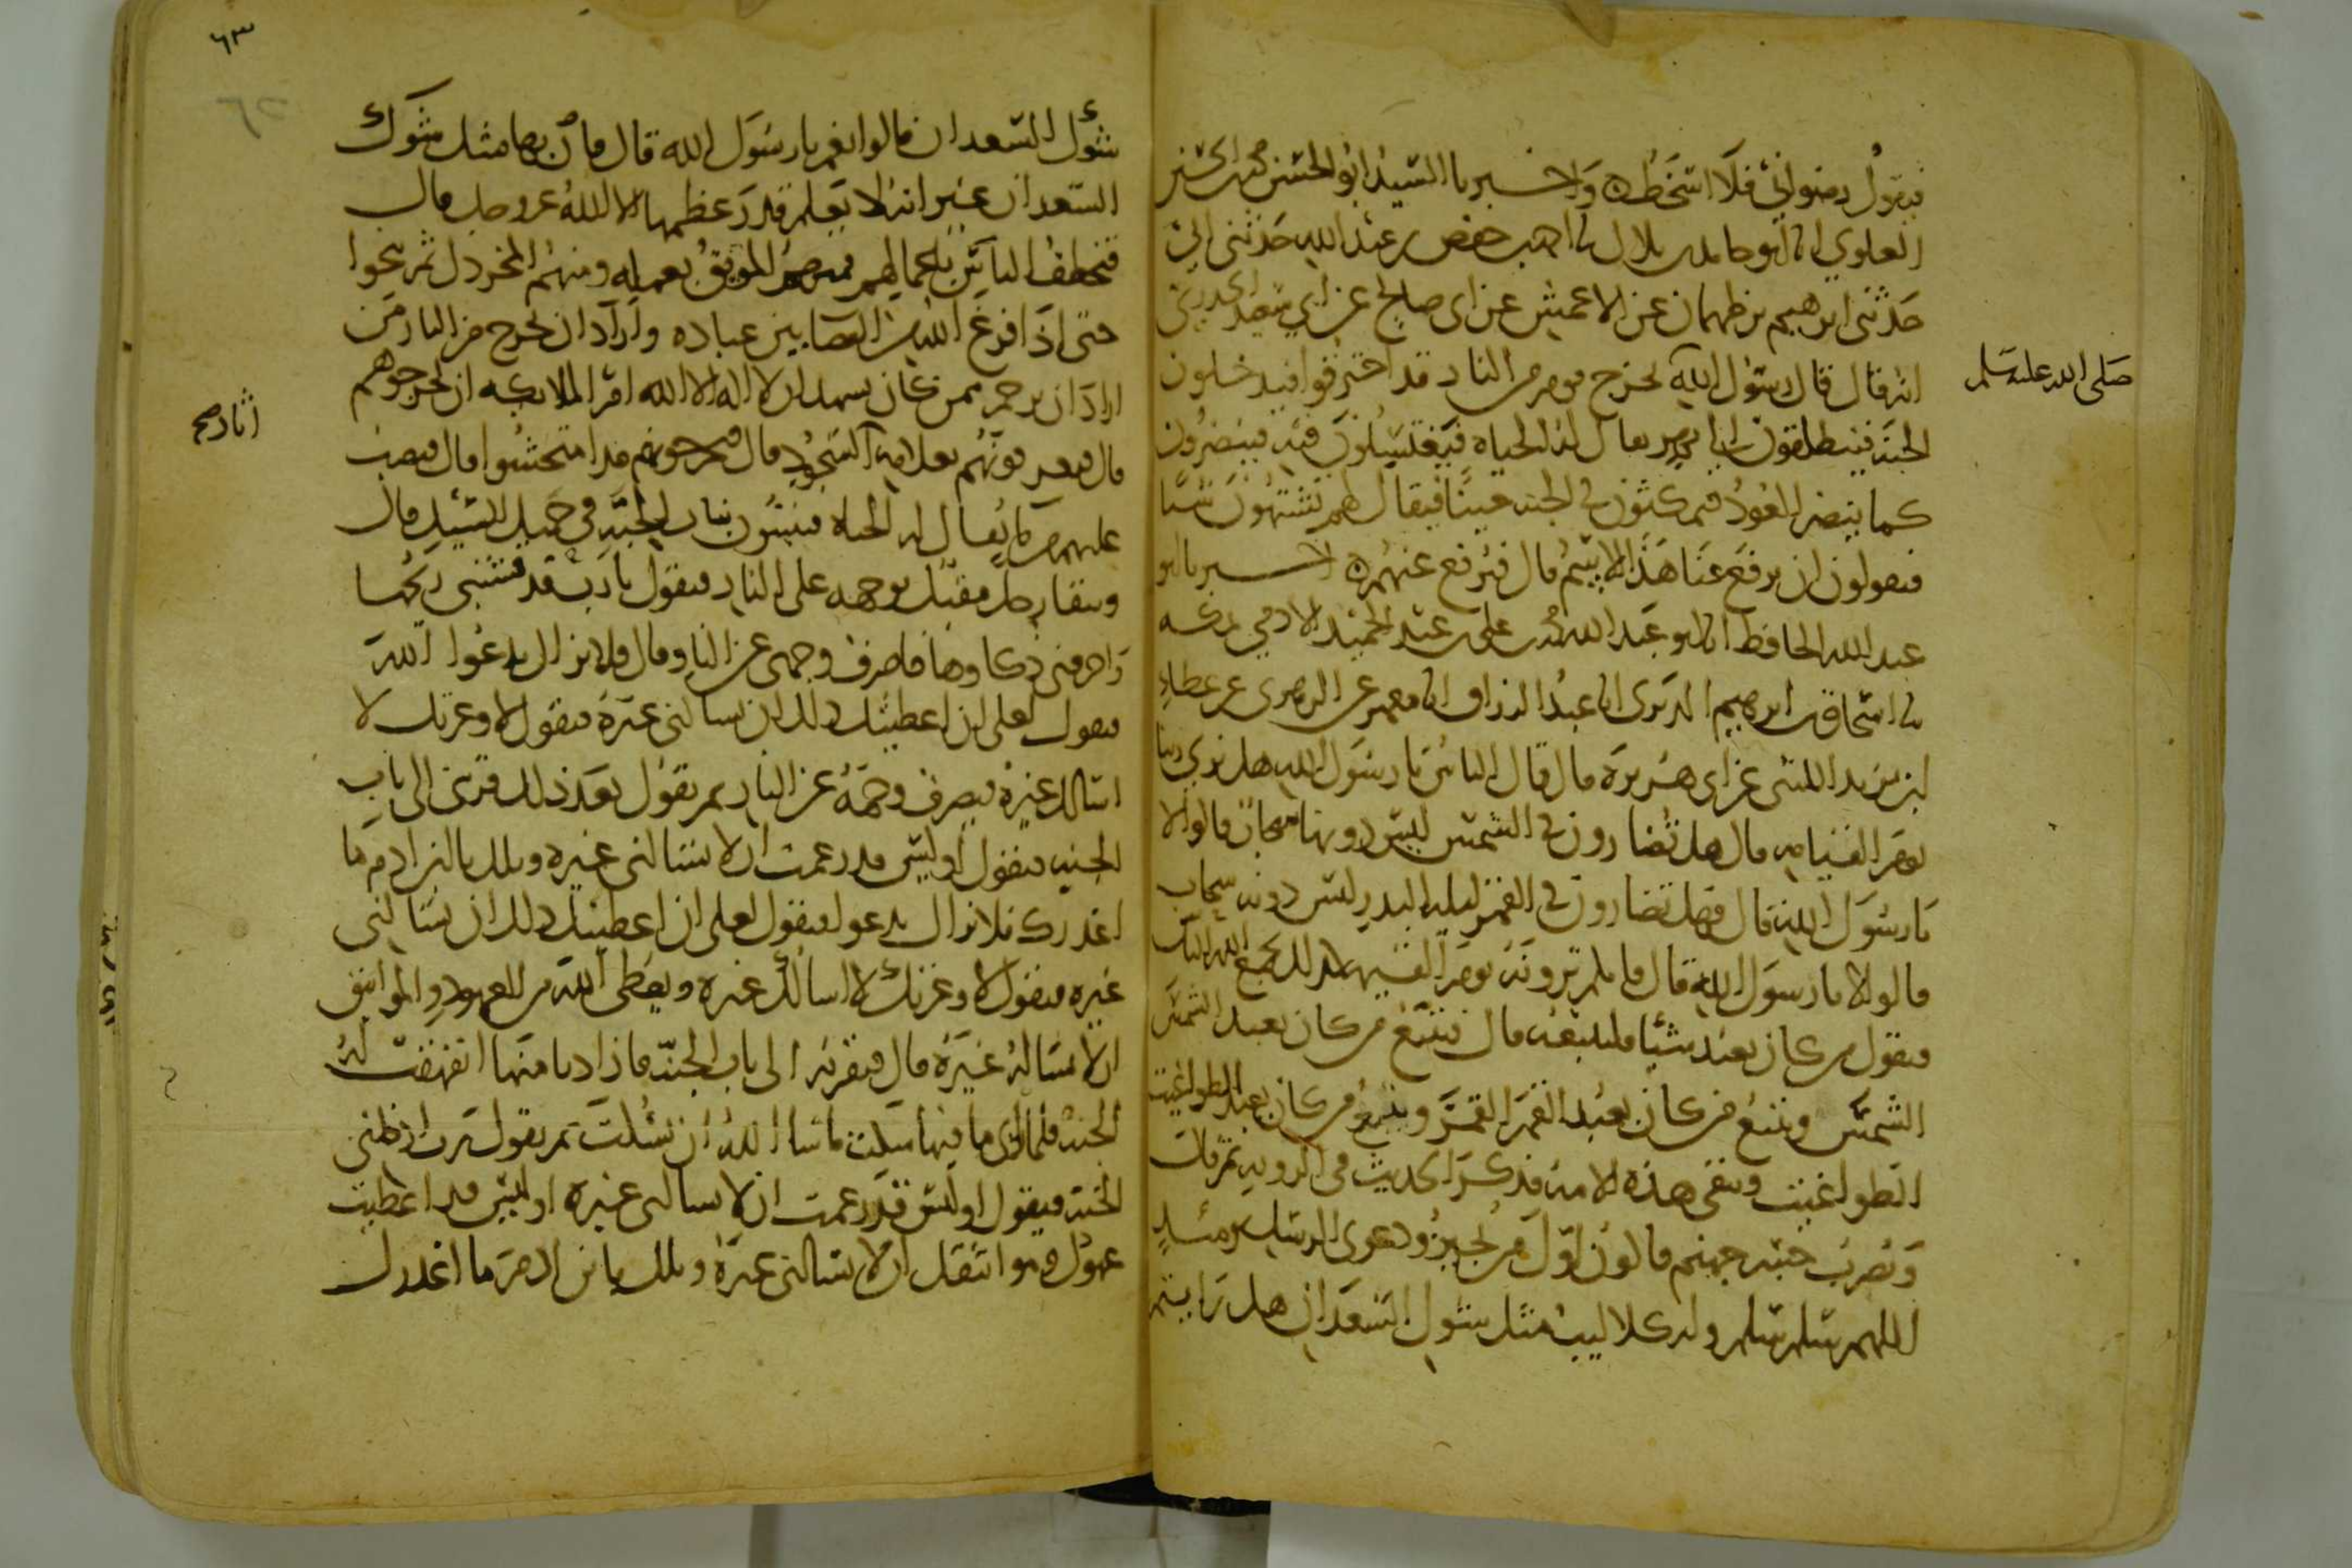 فيقول رضواني فلا اسخط واخبرنا السيد ابو الحسن محمد بن الحسين
العلوي انا ابو حامد بن بلال نا احمد بن حفص بن عبد الله حدثني ابي
حدثني ابرهيم بن طهمان عن الاعمش عن ابي صالح عن ابي سعيد الخدري
انه قال قال رسول الله يخرج قوم من النار قد احترقوا فيدخلون
صلى الله عليه وسلم
الجنة فينطلقون الى نهر يقال له الحياه فيغتسلون فيه فينضرون
كما ينضر العود فيمكثون في الجنه حينا فيقال لهم تشتهون شيا
فيقولون ان يرفع عنا هذا الاسم قال فيرفع عنهم اخبرنا ابو
عبد الله الحافظ انا ابو عبد الله محمد بن علي بن عبد الحميد الادمي بمكه
نا اسحاق بن ابرهيم الدبري انا عبد الرزاق انا معمر عن الزهري عن عطاء
ابن يزيد الليثي عن ابي هريرة قال قال الناس يا رسول الله هل نرى ربنا
يوم القيامه قال هل تضارون في الشمس ليس دونها سحاب قالوا لا
يا رسول الله قال فهل تضارون في القمر ليله البدر ليس دونه سحاب
قالوا لا يا رسول الله قال فانكم ترونه يوم القيمه كذلك يجمع الله الناس
فيقول من كان يعبد شيئا فليتبعه قال فيتبع من كان يعبد الشمس
الشمس ويتبع من كان يعبد القمر القمر ويتبع من كان يعبد الطواغيت
الطواغيت وتبقى هذه الامه فذكر الحديث في الرويه ثم قال
ويضرب جسر جهنم فاكون اول من يجيز ودعوى الرسل يومئذ
اللهم سلم سلم وله كلاليب مثل شوك السعدان هل رايتم
٦٣
شوك السعدان قالوا نعم يا رسول الله قال فانها مثل شوك
السعدان غير انه لا يعلم قدر عظمها الا الله عز وجل قال
فتخطف الناس باعمالهم فمنهم الموبق بعمله ومنهم المخردل ثم ينجوا
حتى اذا فرغ الله من القضا بين عباده واراد ان يخرج من النار من
اراد ان يرحم ممن كان يشهد ان لا اله الا الله امر الملايكه ان يخرجوهم
قال فيعرفونهم بعلامه السجود قال فيخرجونهم قد امتحشوا قال فيصب
عليهم ما يقال له الحياه فينبتون نبات الحبة في حميل السيل قال
ويبقا رجل مقبل بوجهه على النار فيقول يا رب قد قشبني ريحها
واحرقني ذكاوها فاصرف وجهي عن النار قال فلا يزال يدعوا الله
فيقول لعلي ان اعطيتك ذلك ان تسالني غيرة فيقول لا وعزتك لا
اسالك غيره فيصرف وجهه عن النار ثم يقول بعد ذلك قربني الى باب
الجنه فيقول اوليس قد زعمت ان لا تسالني غيره ويلك يا ابن ادم ما
اغدرك فلا يزال يدعو فيقول لعلي ان اعطيتك ذلك ان تسالني
غيره فيقول لا وعزتك لا اسالك غيره ويعطي الله من العهود والمواثيق
ان لا يساله غيره قال فيقربه الى باب الجنة فاذا دنا منها انفهقت له
الجنة فلما راى ما فيها سكت ما شا الله ان يسكت ثم يقول رب ادخلني
الجنة فيقول اوليس قد زعمت ان لا تسالني غيره اوليس قد اعطيت
عهودك ومواثيقك ان لا تسالني غيرة ويلك يا ابن ادم ما اغدرك